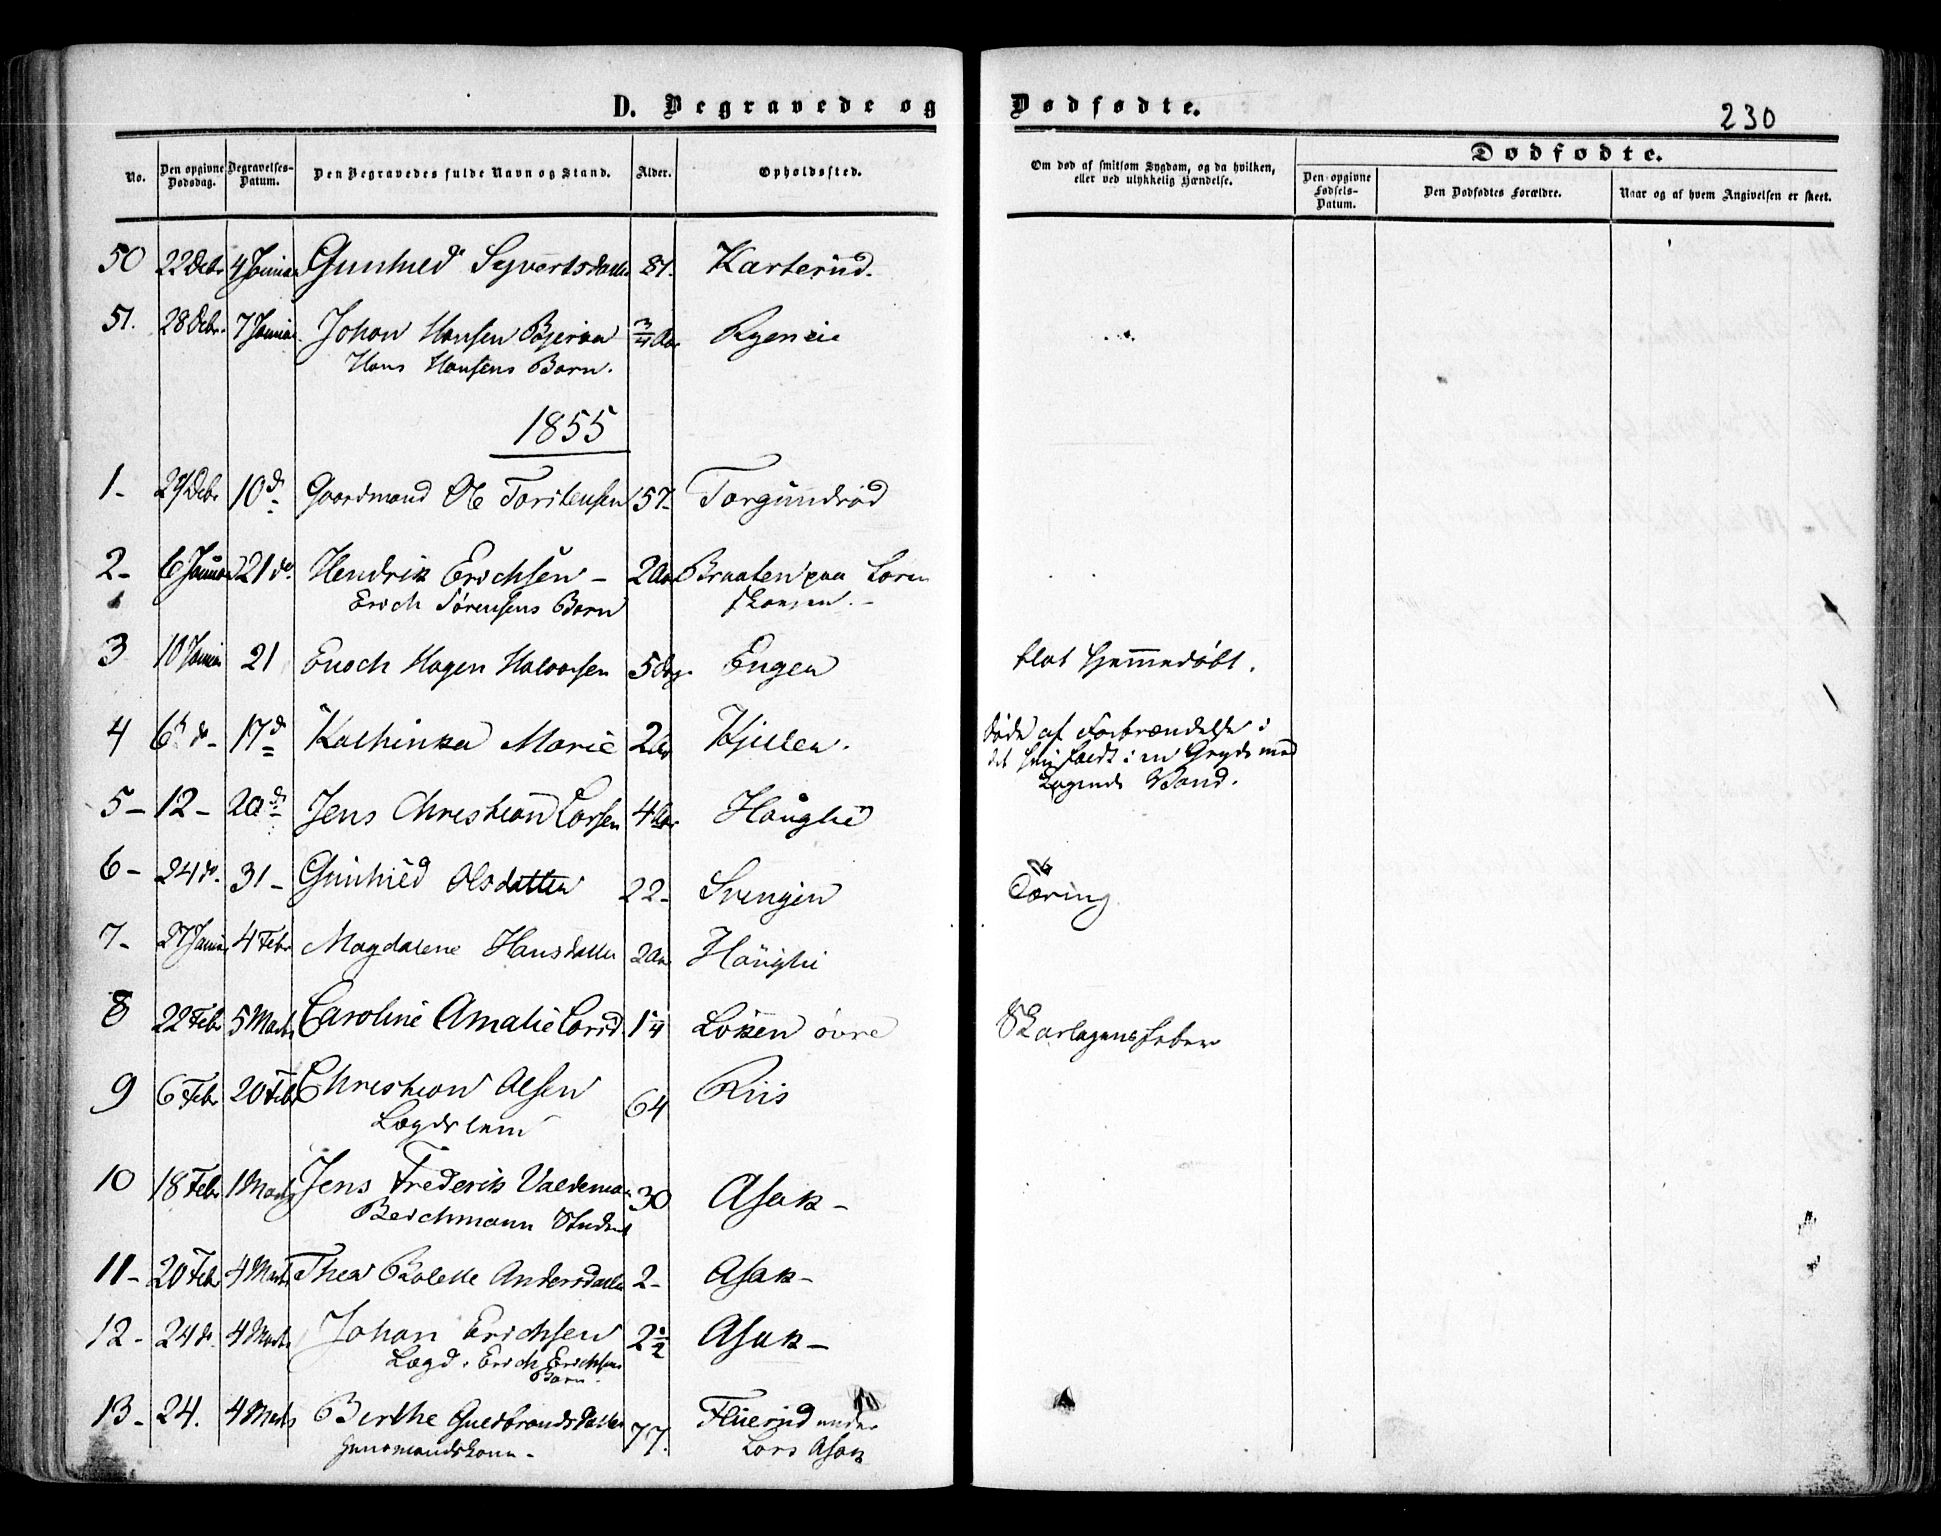 D. Begravede og Dødfødte.
230
No.
Den opgivne Dødsdag.
Begravelses-Datum.
Den Begravedes fulde Navn og Stand.
Alder.
Opholdssted.
Om død af smitsom Sygdom, og da hvilken,
eller ved ulykkelig Hændelse.
Dødfødte.
Den opgivne Fødsels-Datum.
Den Dødfødtes Forældre.
Naar og af hvem Angivelsen er skeet.
50 22 Debr 4 Januar Gunhild Syvertsdatter 81. Karterud.
51. 28 Debr. 7 Januar Johan Hansen 3/4 Aar Ryeneie
Hans Hansens Barn.
1855
1- 29 Debr 10 d Gaardmand Ole Torstensen 57- Torgundrød
2- 6 Januar 21 do. Hendrik Erichsen - 2 Aar Braaten paa Loren
Erich Sørensens Barn skoven.-
3 10 Januar 21 Enoch Hagen Halvorsen 5 Dage Engen blot hjemmedøbt.
4 6 do- 17 d Kathinka Marie 2 Aar Døde af Forbrændelse i
det hun faldt i en Gryde med
kogende Vand.
5- 12- 20 d Jens Christian Larsen 4 Aar Hauglie
6- 24 do. 31- Gunhild Olsdatter 22- Svengen Tæring
7- 27 Januar 4 Febr Magdalene Hansdatter 2 Aar Hauglie
8 22 Febr 5 Marts Caroline Amalie Larsd. 1 1/4 Løken øvre Skarlagensfeber
9 6 Febr 20 Febr Christian Olsen 64 Riis
Lægdslem
10 18 Febr 1 Marts Jens Frederik Valdemar 30 Asak-
Beichmann Student
11- 20 Febr 4 Marts Thea Bolette Andersdatter 2- Asak-
12- 24 do. 4 Marts Johan Erichsen 2 1/2 Asak-
Lægd. Erich Erichsens
Barn.
13- 24. 4 Marts Berthe Guldbrandsdatter 77. under
Huusmandskone- Lars Asak